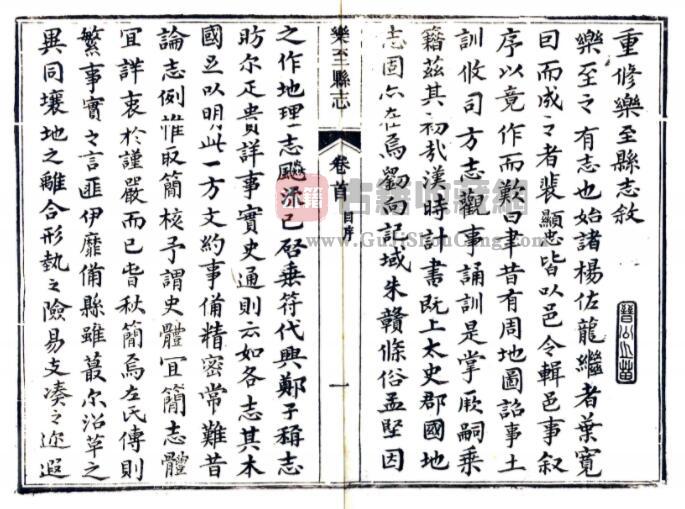 重修樂至縣志敘
樂至之有志也始諸楊佐龍繼者葉寬
曰而成之者裴顯忠皆以邑令輯邑事叙
序以竟作而歎曰聿昔有周地圖詔事土
訓攸司方志觀事誦訓是掌厥嗣乘
籍茲其初哉漢時計書旣上太史郡國地
志固亦在焉劉向記域朱贛條俗孟堅因
樂至縣志
卷首
目序
一
之作地理一志飈流已啓垂符代興鄭子稱志
昉尔疋貴詳事實史通則云如各志其本
國足以明此一方文約事備精密常難昔
論志例惟取簡核予謂史體宜簡志體
宜詳衷於謹嚴而已旾秋簡焉左氏傳則
繁事實之言匪伊靡備縣雖蕞尔沿革之
異同壤地之離合形埶之險易支凑之迩遐
古籍收藏网
www.GuJiShouCang.com